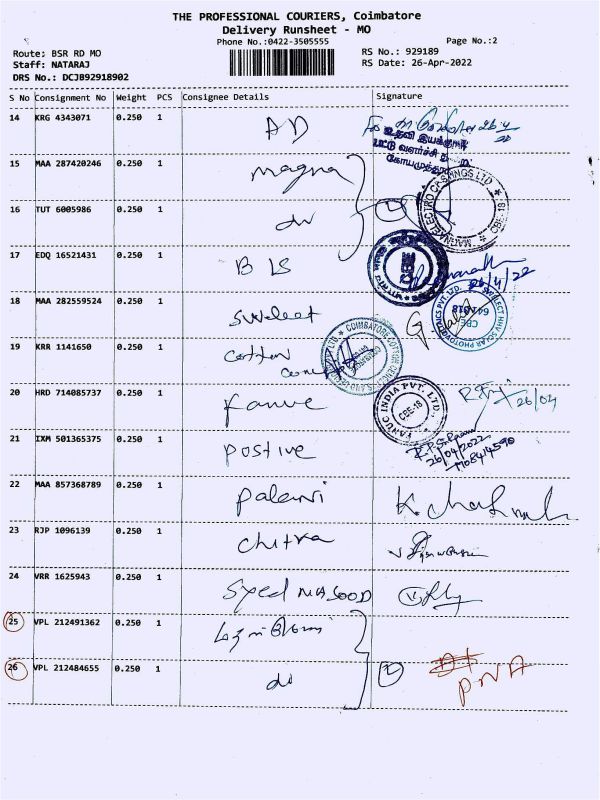 THE PROFESSIONAL COURIERS, Coimbatore
Delivery Runsheet - MO
Phone No.:0422-3505555
Page No.:2
Route: BSR RD MO
RS No.: 929189
Staff: NATARAJ
RS Date: 26-Apr-2022
DRS No.: DCJB92918902
S No Consignment No Weight PCS Consignee Details Signature
14 KRG 4343071 0.250 1 AD
உதவி இயக்குநர்
பட்டு வளர்ச்சி
15 MAA 287420246 0.250 1 magna
MAGNA ELECTRO CASTINGS LTD CBE-18
16 TUT 6005986 0.250 1 do
17 EDQ 16521431 0.250 1 BLS
CBE
26/4/22
18 MAA 282559524 0.250 1 swelect
SWELECT HHV SOLAR PHOTOVOLTAICS PVT. LTD. CBE 641 018
19 KRR 1141650 0.250 1 cotton
COIMBATORE COTTON
20 HRD 714085737 0.250 1 Fanuc
FANUC INDIA PVT. LTD. CBE-18
26/04
21 IXM 501365375 0.250 1 Postive
26/04/2022
22 MAA 857368789 0.250 1 Palani
23 RJP 1096139 0.250 1 chitra
24 VRR 1625943 0.250 1 Syed MASOOD
25 VPL 212491362 0.250 1
26 VPL 212484655 0.250 1 do
PNA